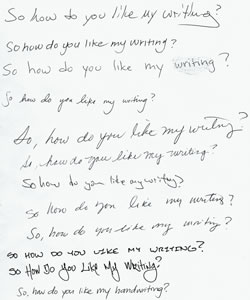 So how do you like my writing?
So how do you like my writing?
So how do you like my writing?
So how do you like my writing?
So, how do you like my writing?
So, how do you like my writing?
So how do you like my writing?
So how do you like my writing?
So, how do you like my writing?
SO HOW DO YOU LIKE MY WRITING?
So How Do You Like My Writing?
So, how do you like my handwriting?